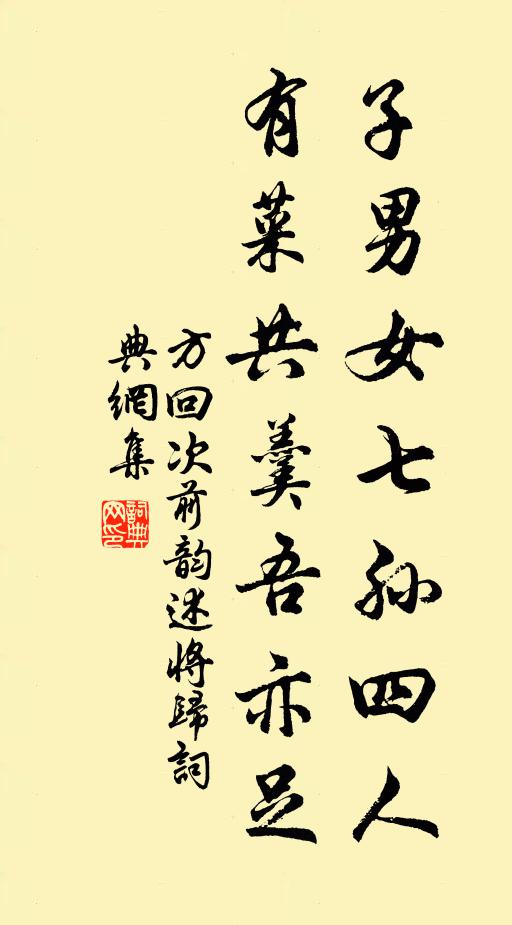 子男女七孙四人
有菜共羹吾亦足
方回次前韵述将歸詞
典網集
詞典
网印